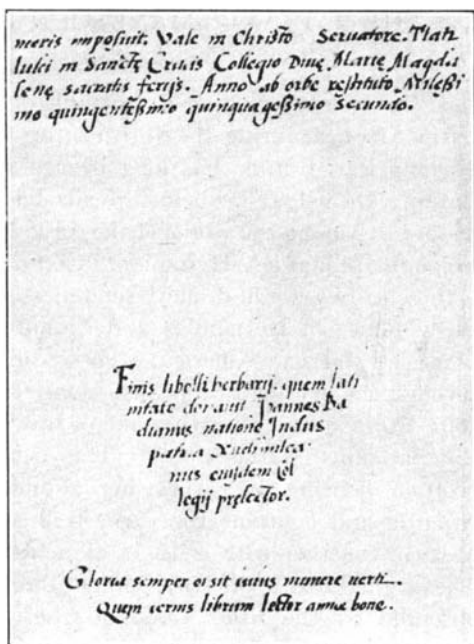 meris imposuit. Vale in Christo Seruatore. Tlati
lulci in Sanctę Crucis Collegio Diuę Marię Magda
lenę sacratis ferijs. Anno ab orbe restituto Milessi
mo quingentessimo quinquagessimo secundo.
Finis libelli herbarij. quem lati
nitate donauit Joannes Ba
dianus natione Jndus
patria Xuchimilca
nus eiusdem Col
legij pręlector.
Gloria semper ei sit cuius munere uerti
Quem cernis librum lector amice bone.